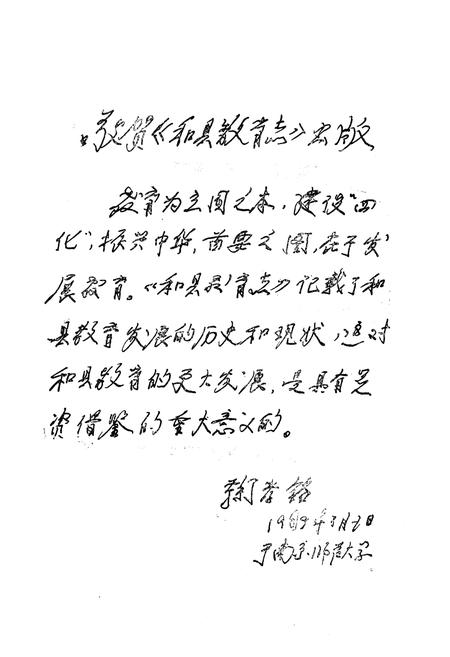 敬贺《和县教育志》出版
教育为立国之本，建设“四
化”，振兴中华，首要之图，在于发
展教育。《和县教育志》记载了和
县教育发展的历史和现状，这对
和县教育的更大发展，是具有足
资借鉴的重大意义的。
鞠孝铭
1989年3月3日
于南京师范大学